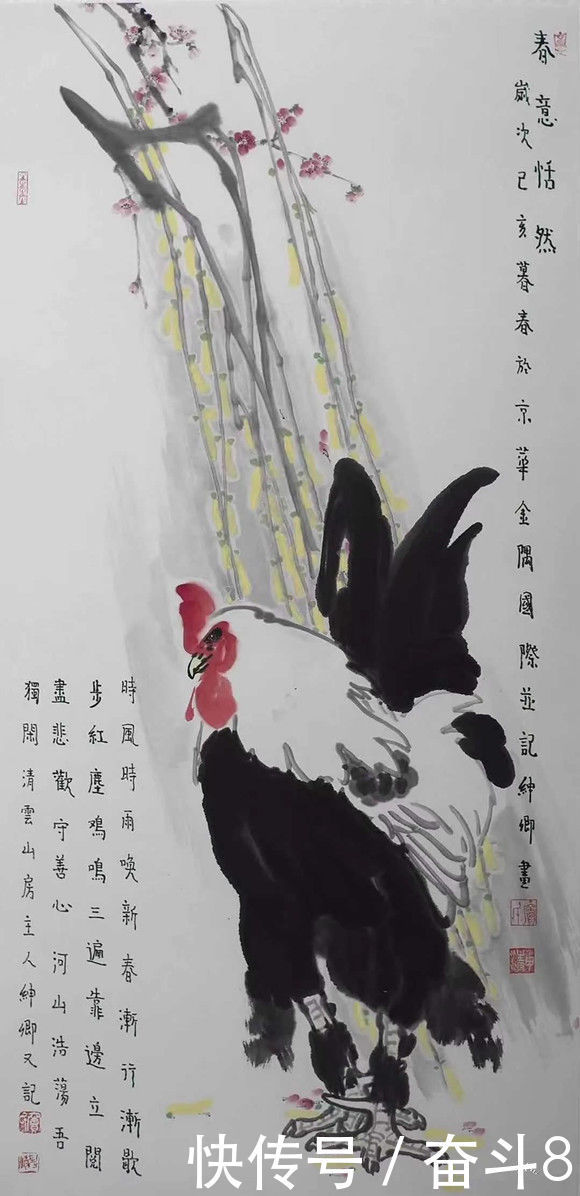 春意恬然
歲次己亥暮春於京華金隅國際並記紳卿畫
時風時雨喚新春漸行漸歇
步紅塵鸡鳴三遍靠邊立閱
盡悲歡守善心河山浩蕩吾
獨閑清雲山房主人紳卿又記
快传号 / 奋斗8